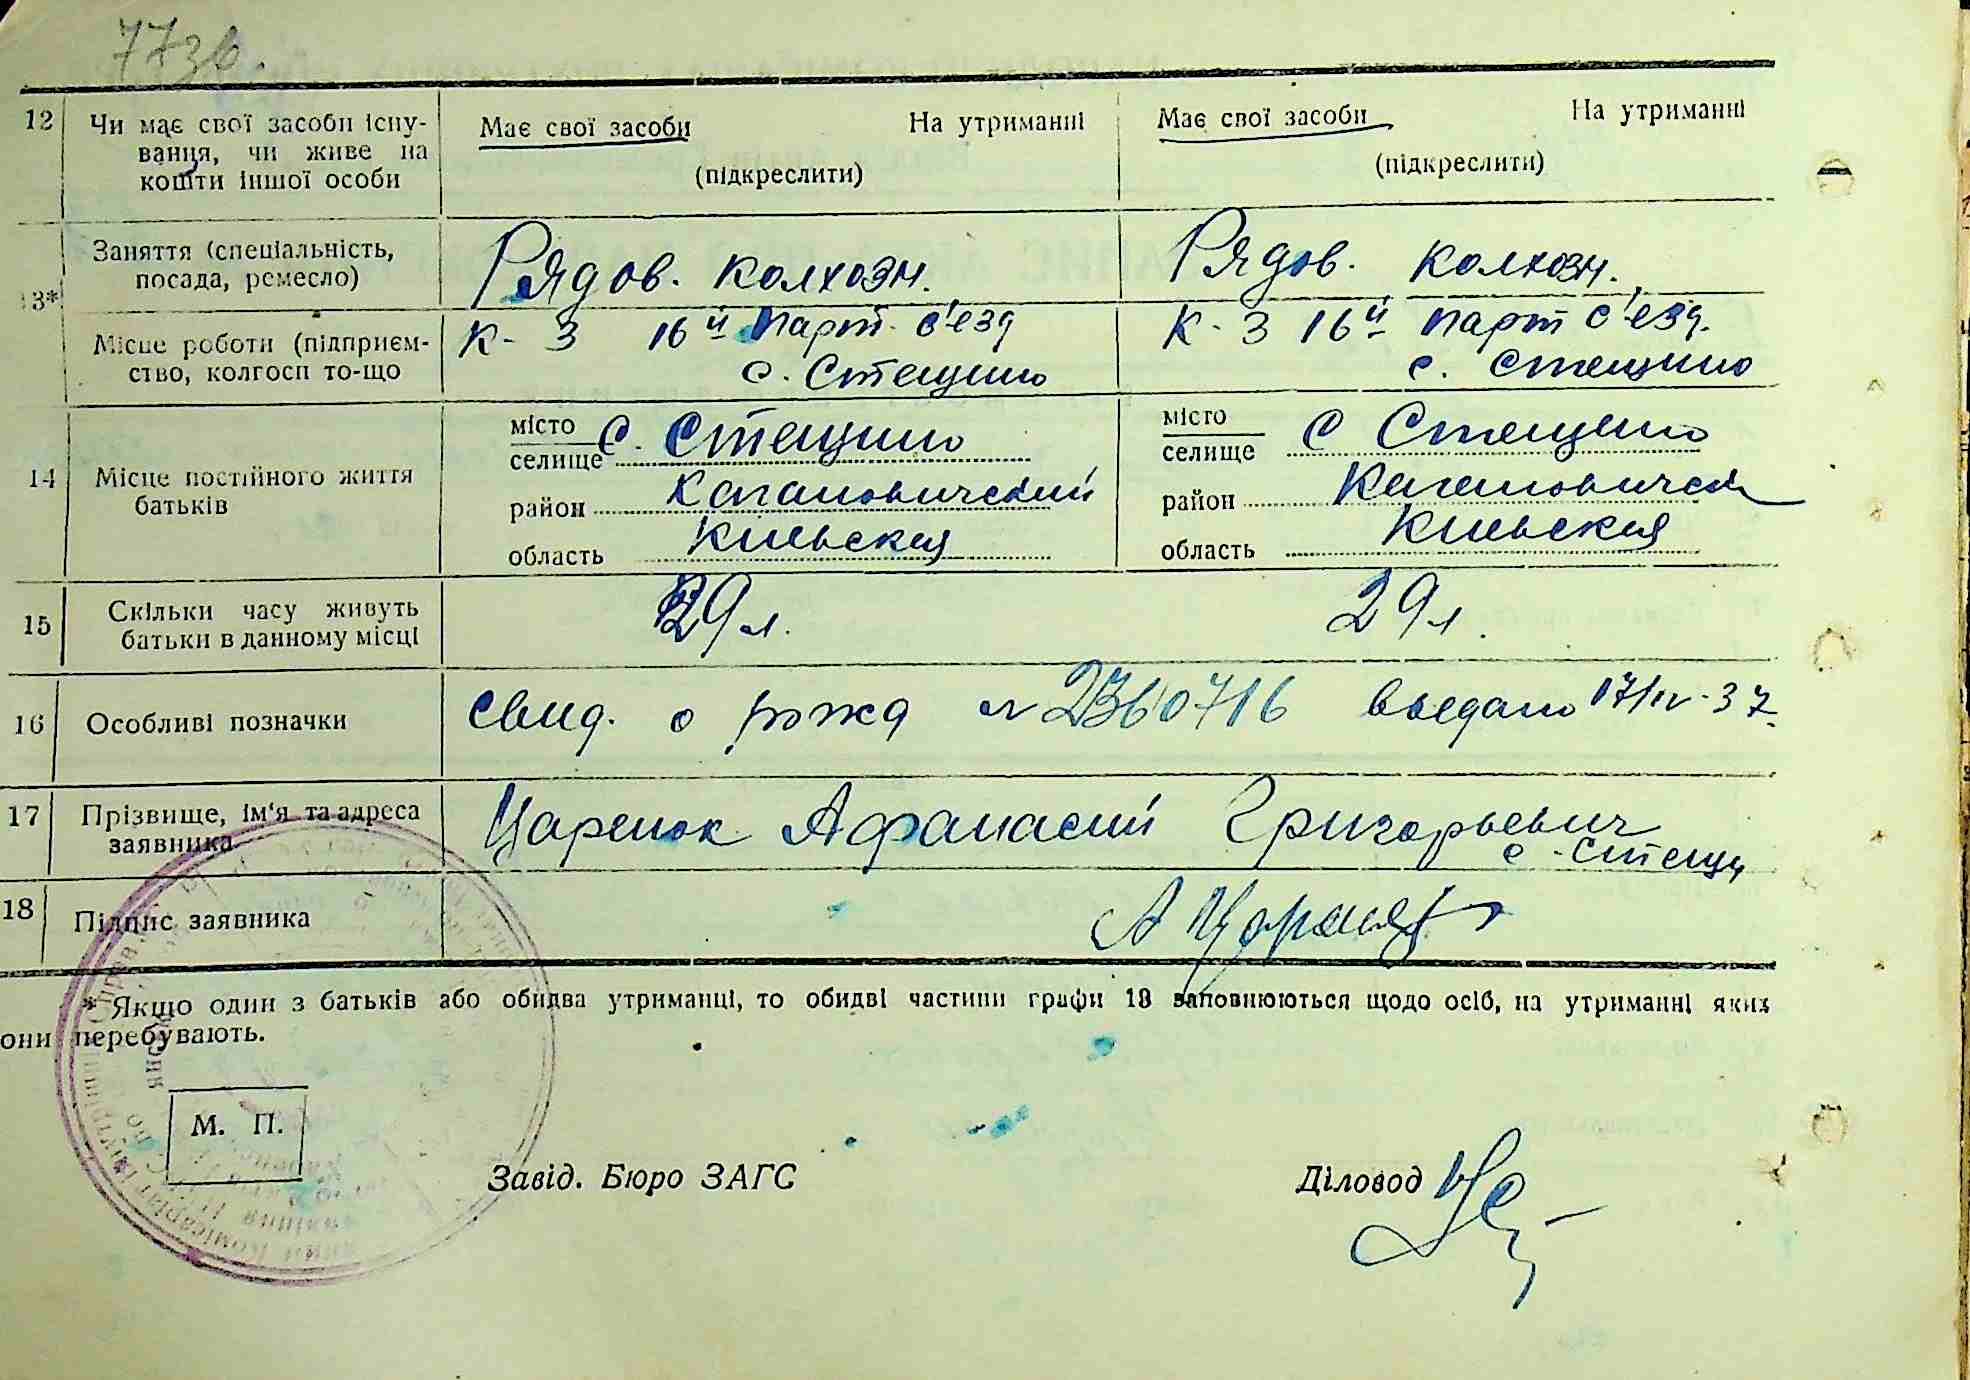 77зв.
12 Чи має свої засоби існу-
вання, чи живе на
кошти іншої особи
Має свої засоби На утриманні
(підкреслити)
Має свої засоби На утриманні
(підкреслити)
13*
Заняття (спеціальність,
посада, ремесло)
Рядов. колхозн.
Рядов. колхозн.
Місце роботи (підприєм-
ство, колгосп то-що
К-З 16й Парт. с'езд
с. Стещино
К-З 16й парт с'езд.
с. Стещино
14 Місце постійного життя
батьків
місто
селище с. Стещино
район Кагановический
область Киевская
місто
селище с Стещино
район
область Киевская
15 Скільки часу живуть
батьки в данному місці
29 л.
29 л.
16 Особливі позначки
свид. о рожд № 2360716 выдано 17/IV-37
17 Прізвище, ім'я та адреса
заявника
Царенок Афанасий Григорьевич
с. Стещ
18 Підпис заявника
* Якщо один з батьків або обидва утриманці, то обидві частини графи 13 заповнюються щодо осіб, на утриманні яких
они перебувають.
М. П.
Завід. Бюро ЗАГС
Діловод